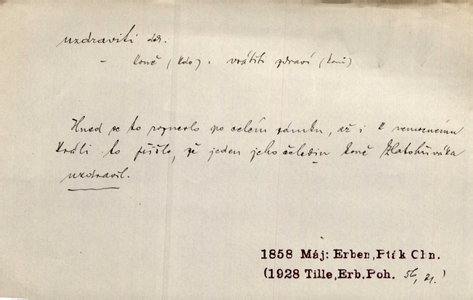 uzdraviti dok.
– koně (kdo). vrátiti zdraví (koni)
Hned se to rozneslo po celém zámku, až i k nemocnému
králi to přišlo, že jeden jeho čeledín koně Zlatohříváka
uzdravil.
1858 Máj: Erben, Pták Ohn.
(1928 Tille, Erb. Poh. 56, 21.)